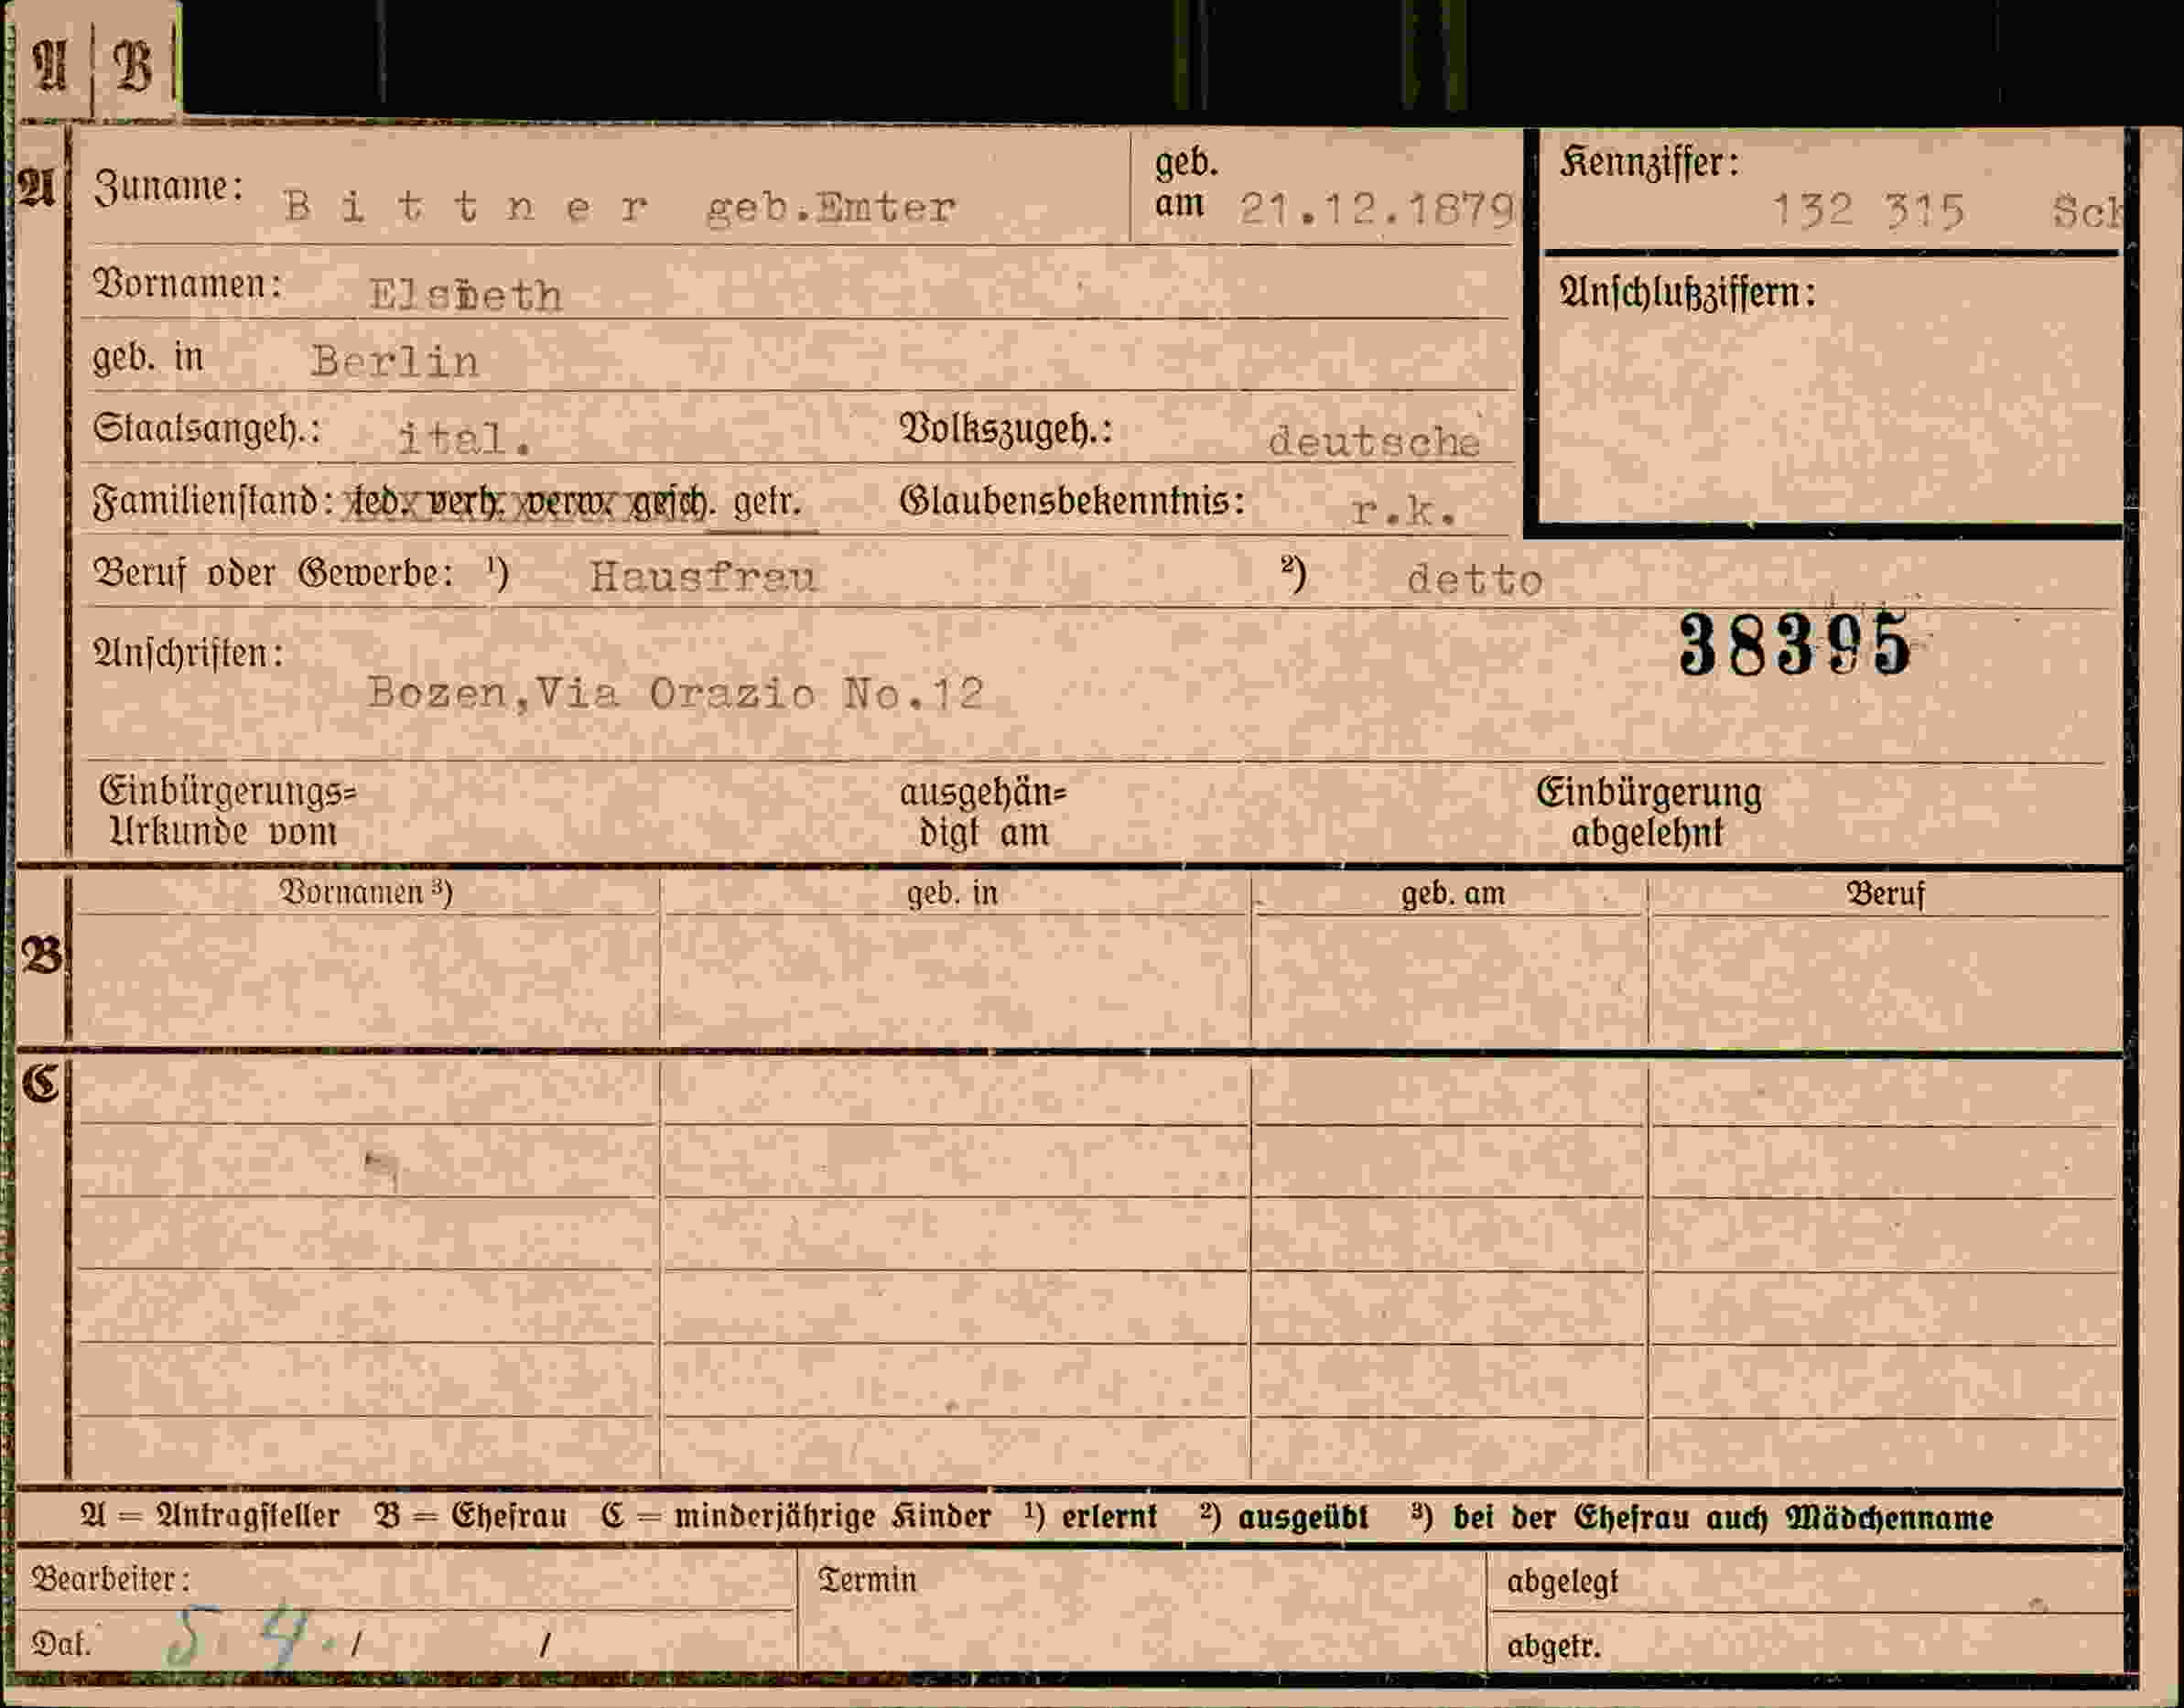 A B
A Zuname: Bittner geb.Emter geb. am 21.12.1879 Kennziffer: 132 315 Sch
Vornamen: Elsbeth Anschlußziffern:
geb. in Berlin
Staatsangeh.: ital. Volkszugeh.: deutsche
Familienstand: led. verh. verw. gesch. getr. Glaubensbekenntnis: r.k.
Beruf oder Gewerbe: ¹) Hausfrau ²) detto
38395
Anschriften:
Bozen,Via Orazio No.12
Einbürgerungs= ausgehän= Einbürgerung
Urkunde vom digt am abgelehnt
Vornamen ³) geb. in geb. am Beruf
B
C
A = Antragsteller B = Ehefrau C = minderjährige Kinder ¹) erlernt ²) ausgeübt ³) bei der Ehefrau auch Mädchenname
Bearbeiter: Termin abgelegt
Dat. 5. 4. / / abgetr.